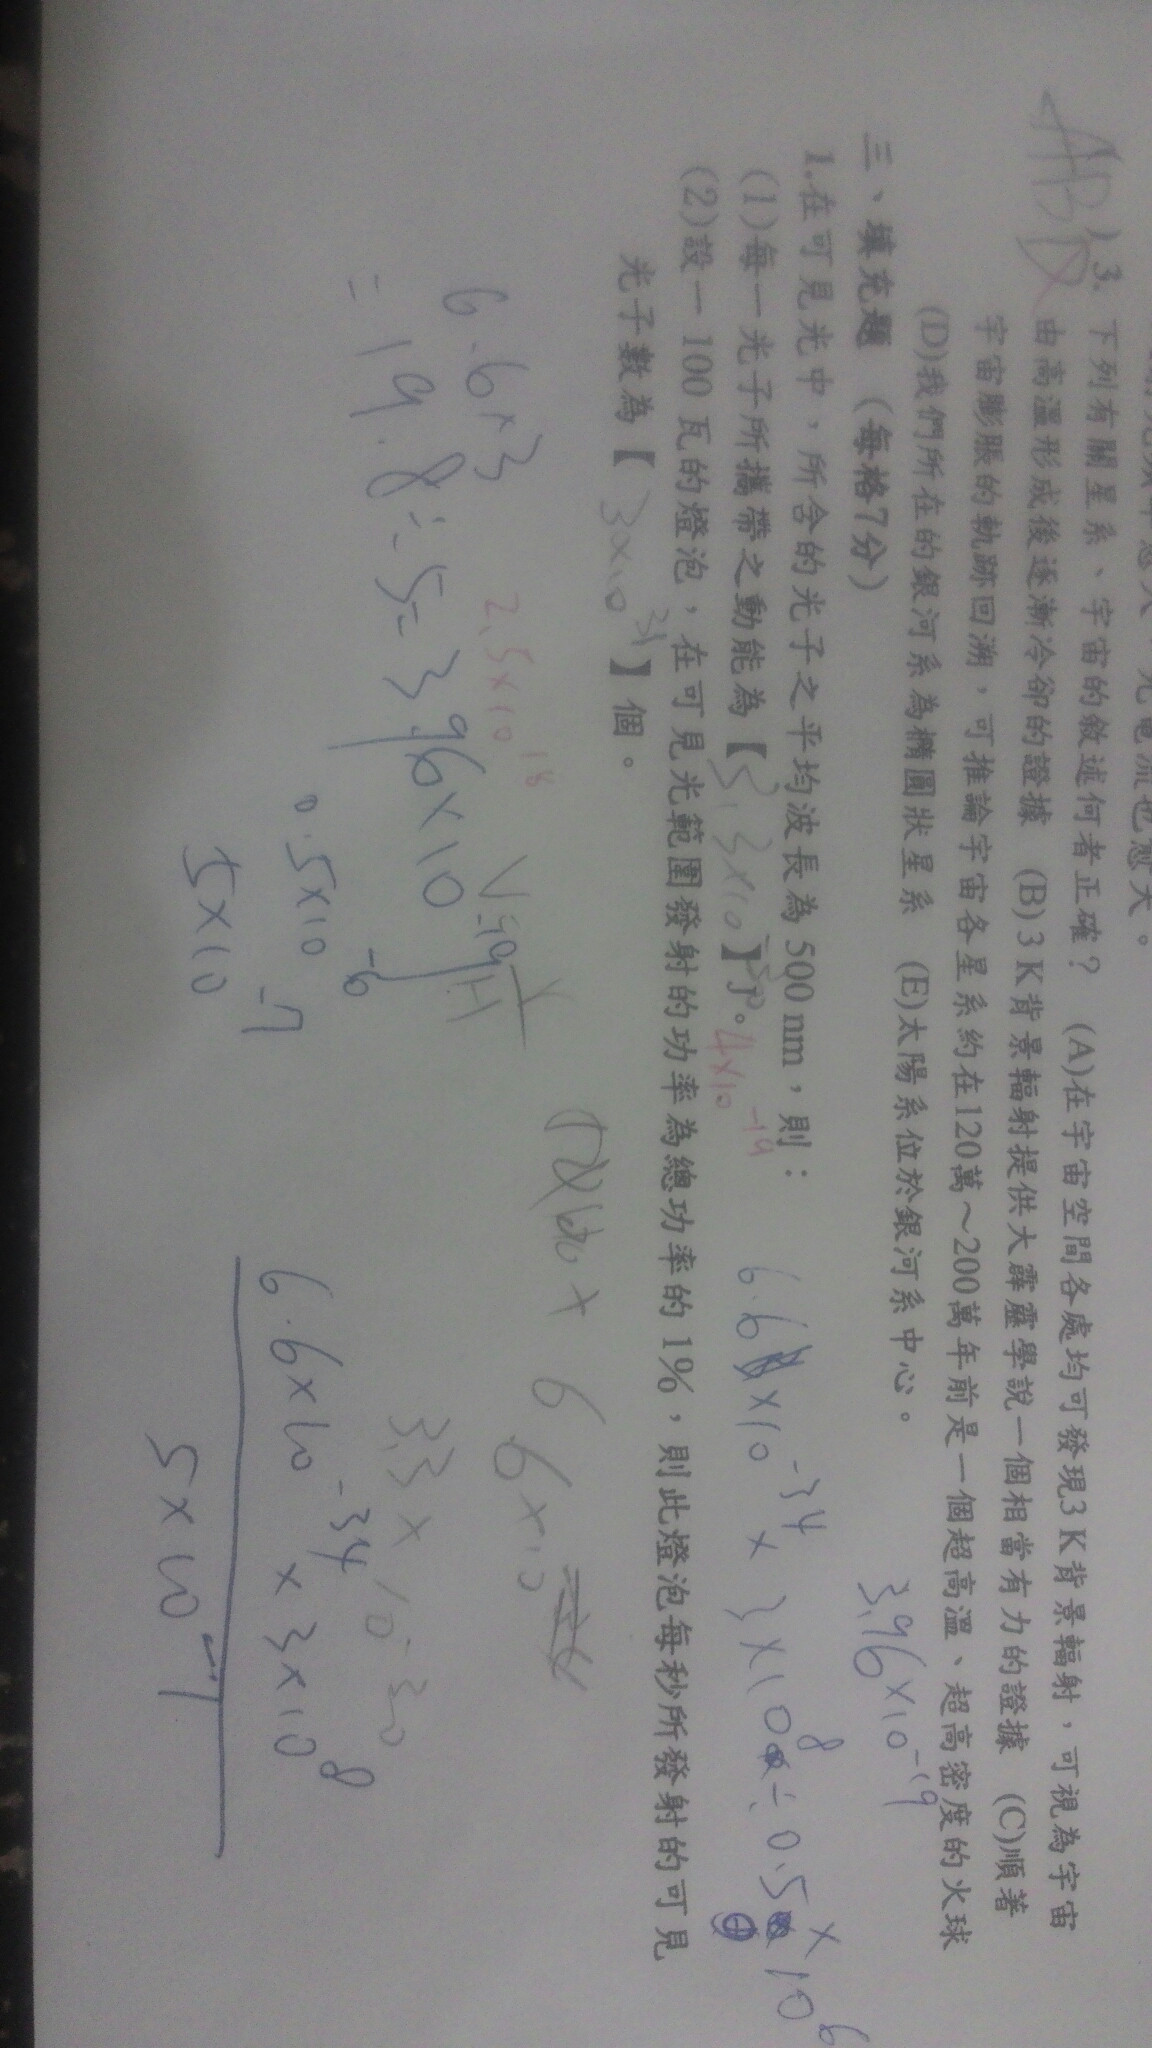 ABD
) 3. 下列有關星系、宇宙的敘述何者正確？ (A)在宇宙空間各處均可發現3 K背景輻射，可視為宇宙
由高溫形成後逐漸冷卻的證據 (B) 3 K背景輻射提供大霹靂學說一個相當有力的證據 (C)順著
宇宙膨脹的軌跡回溯，可推論宇宙各星系約在120萬～200萬年前是一個超高溫、超高密度的火球
(D)我們所在的銀河系為橢圓狀星系 (E)太陽系位於銀河系中心。
三、填充題 (每格7分)
1.在可見光中，所含的光子之平均波長為 500 nm，則：
3.96×10⁻¹⁹
(1)每一光子所攜帶之動能為【3.3×10⁻³⁰】J。4×10⁻¹⁹
6.6×10⁻³⁴ × 3×10⁸ ÷ 0.5×10⁶
(2)設一 100 瓦的燈泡，在可見光範圍發射的功率為總功率的 1%，則此燈泡每秒所發射的可見
光子數為【3×10³¹】個。
2.5×10¹⁸
6.6×3
=19.8÷5=3.96×10⁻¹⁹
6.6×10
3.3×10⁻³⁰
0.5×10⁻⁶
5×10⁻⁷
6.6×10⁻³⁴ × 3×10⁸
5×10⁻⁷